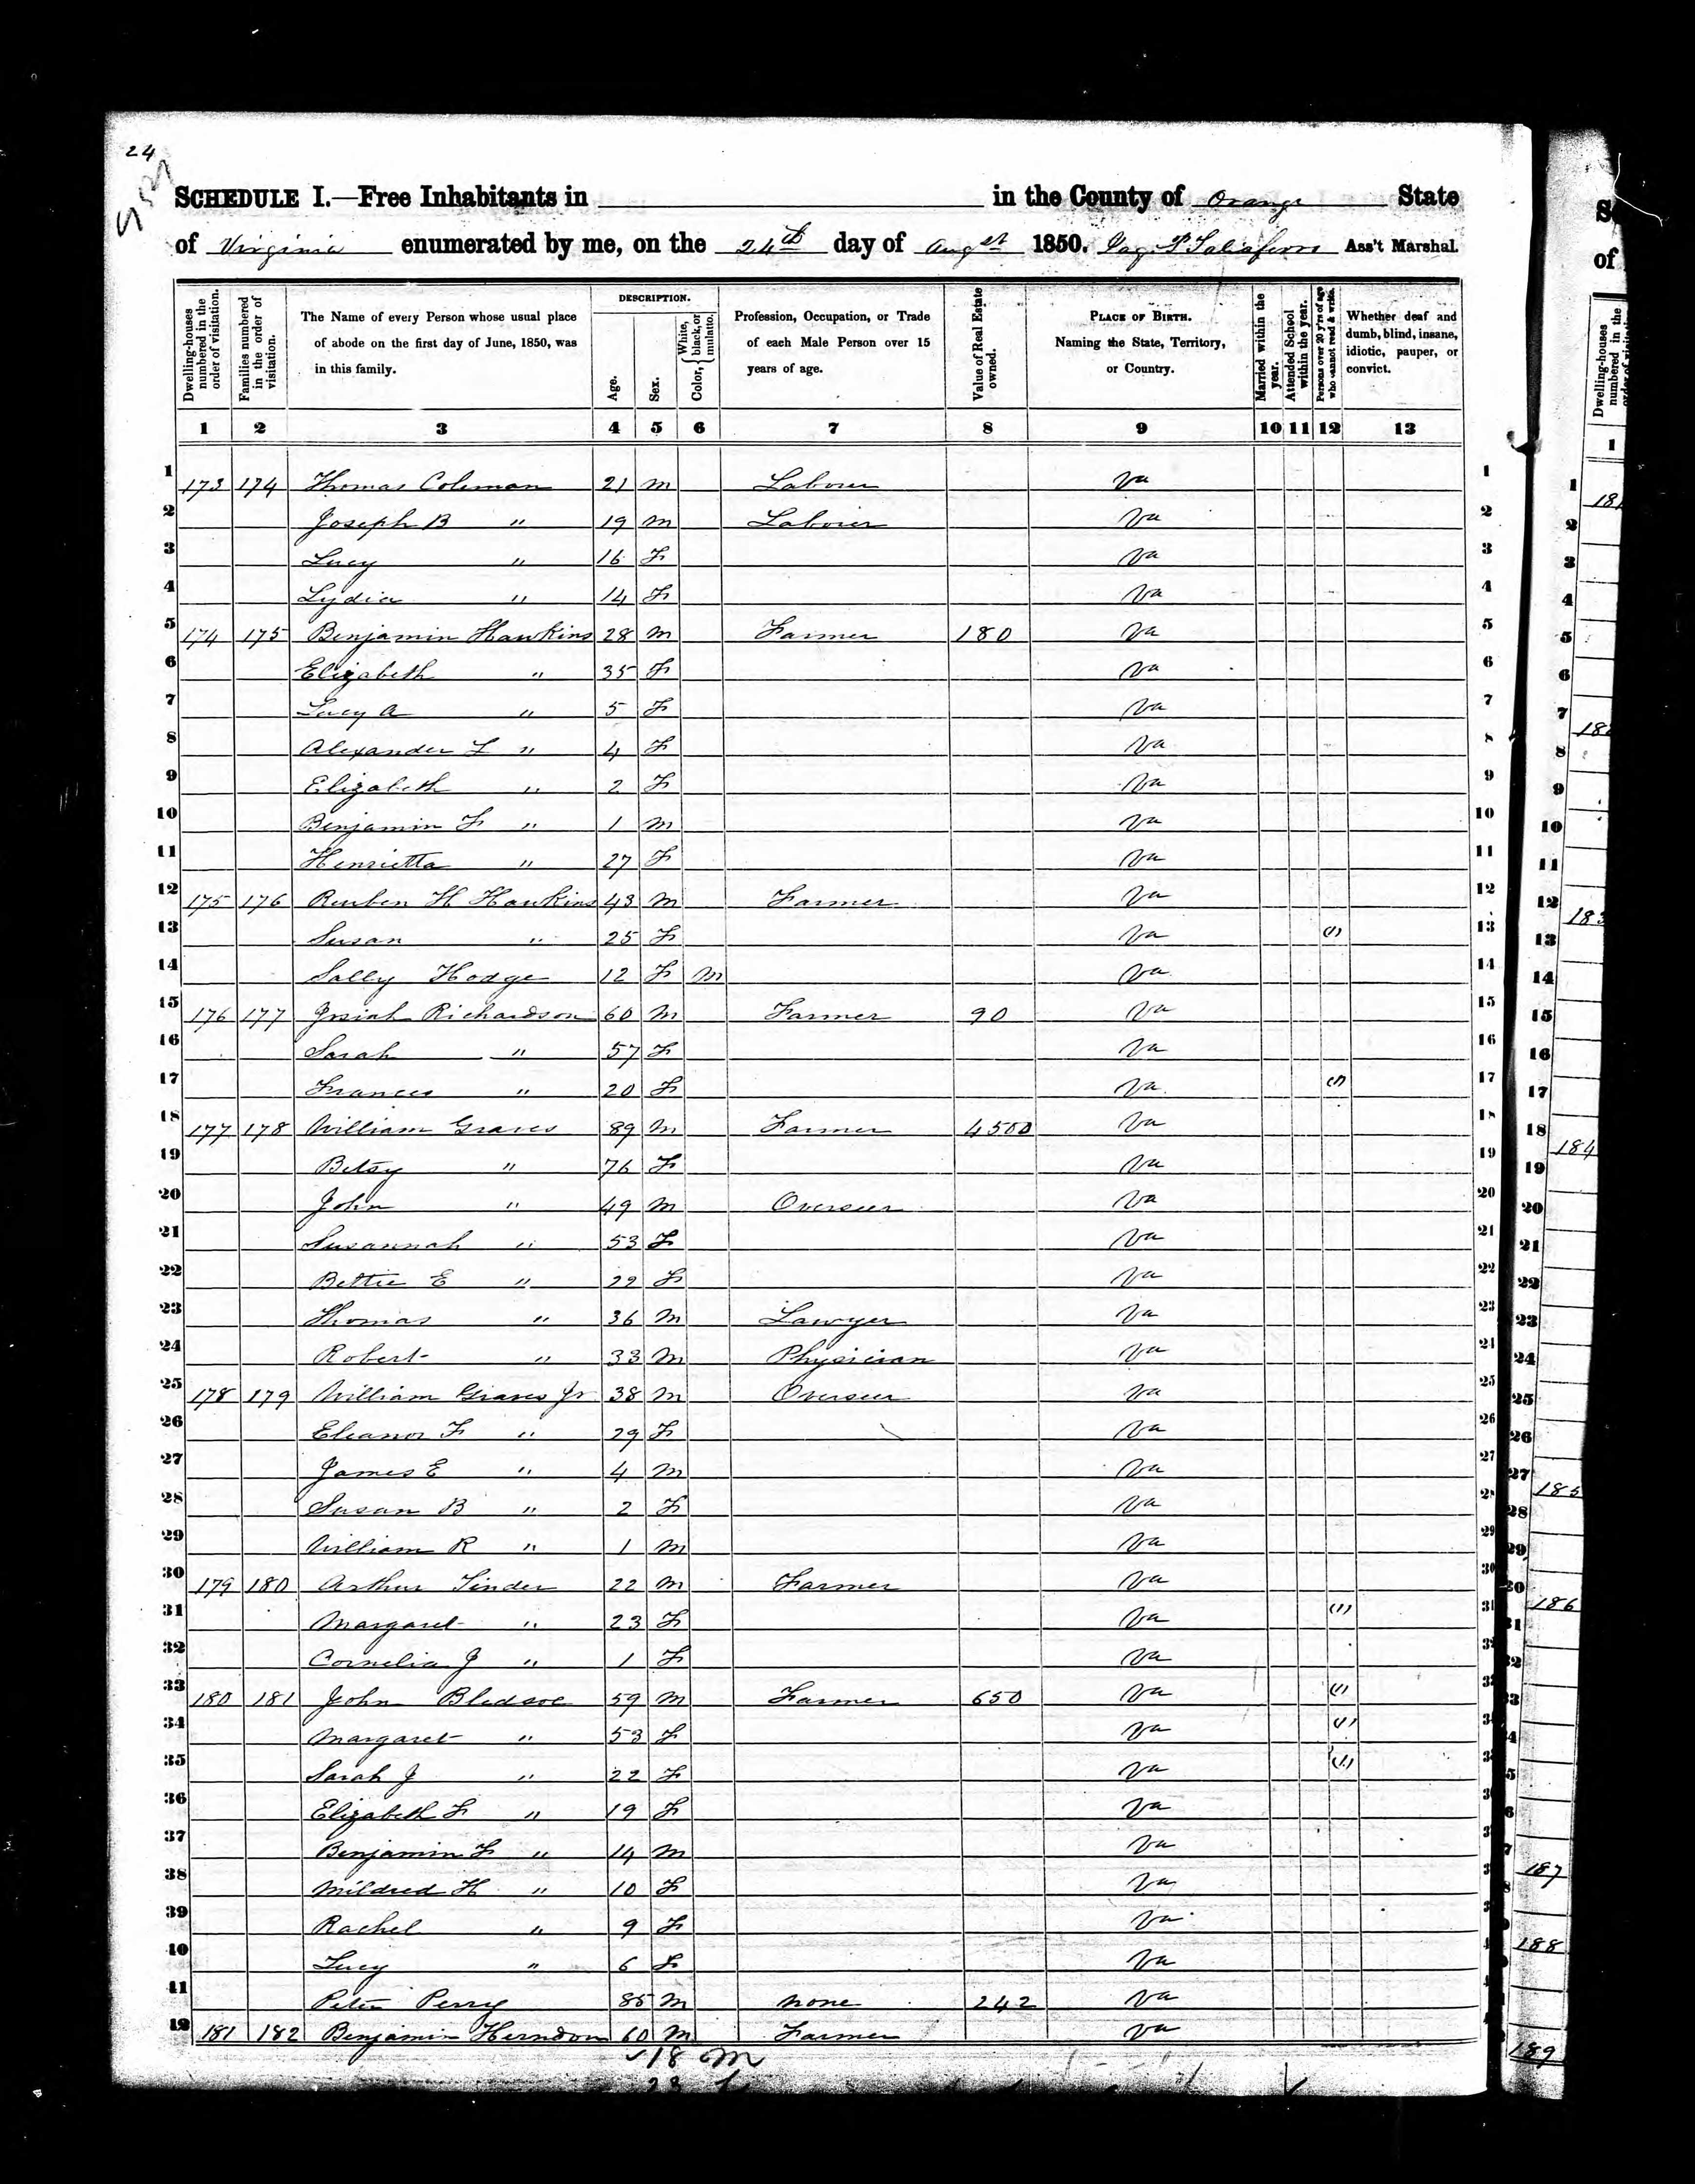 24
SCHEDULE I.—Free Inhabitants in in the County of Orange State
of Virginia enumerated by me, on the 24th day of Augst 1850. Taliaferro Ass't Marshal.
Dwelling-houses numbered in the order of visitation.
Families numbered in the order of visitation.
The Name of every Person whose usual place of abode on the first day of June, 1850, was in this family.
DESCRIPTION.
Age.
Sex.
Color, { White, black, or mulatto.
Profession, Occupation, or Trade of each Male Person over 15 years of age.
Value of Real Estate owned.
PLACE OF BIRTH.
Naming the State, Territory, or Country.
Married within the year.
Attended School within the year.
Persons over 20 y'rs of age who cannot read & write.
Whether deaf and dumb, blind, insane, idiotic, pauper, or convict.
1 2 3 4 5 6 7 8 9 10 11 12 13
1 173 174 Thomas Coleman 21 M Laborer Va 1
2 Joseph B " 19 M Laborer Va 2
3 Lucy " 16 F Va 3
4 Lydia " 14 F Va 4
5 174 175 Benjamin Hawkins 28 M Farmer 180 Va 5
6 Elizabeth " 35 F Va 6
7 Lucy A " 5 F Va 7
8 Alexander L " 4 F Va 8
9 Elizabeth " 2 F Va 9
10 Benjamin F " 1 M Va 10
11 Henrietta " 27 F Va 11
12 175 176 Reuben H Hawkins 43 M Farmer Va 12
13 Susan " 25 F Va (1) 13
14 Sally Hodge 12 F M Va 14
15 176 177 Josiah Richardson 60 M Farmer 90 Va 15
16 Sarah " 57 F Va 16
17 Frances " 20 F Va (1) 17
18 177 178 William Graves 89 M Farmer 4500 Va 18
19 Betsy " 76 F Va 19
20 John " 49 M Overseer Va 20
21 Susannah " 53 F Va 21
22 Bettie E " 22 F Va 22
23 Thomas " 36 M Lawyer Va 23
24 Robert " 33 M Physician Va 24
25 178 179 William Graves Jr 38 M Overseer Va 25
26 Eleanor F " 29 F Va 26
27 James E " 4 M Va 27
28 Susan B " 2 F Va 28
29 William R " 1 M Va 29
30 179 180 Arthur Tinder 22 M Farmer Va 30
31 Margaret " 23 F Va (1) 31
32 Cornelia J " 1 F Va
33 180 181 John Bledsoe 59 M Farmer 650 Va (1)
34 Margaret " 53 F Va (1)
35 Sarah J " 22 F Va (1)
36 Elizabeth F " 19 F Va
37 Benjamin F " 14 M Va
38 Mildred H " 10 F Va
39 Rachel " 9 F Va
40 Lucy " 6 F Va
41 Peter Perry 85 M none 242 Va
42 181 182 Benjamin Herndon 60 M Farmer Va
18 M
S
of
Dwelling-houses numbered in the
1
1
2
3
4
5
6
7
8
9
10
11
12 183
13
14
15
16
17
18 184
19
20
21
22
23
24
25
26
27 185
28
29
186
187
188
189